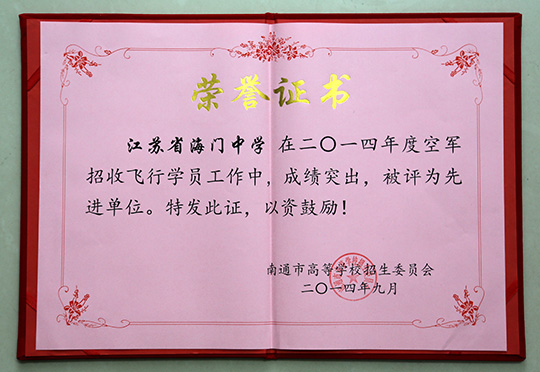 荣誉证书
江苏省海门中学在二〇一四年度空军
招收飞行学员工作中，成绩突出，被评为先
进单位。特发此证，以资鼓励！
南通市高等学校招生委员会
二〇一四年九月